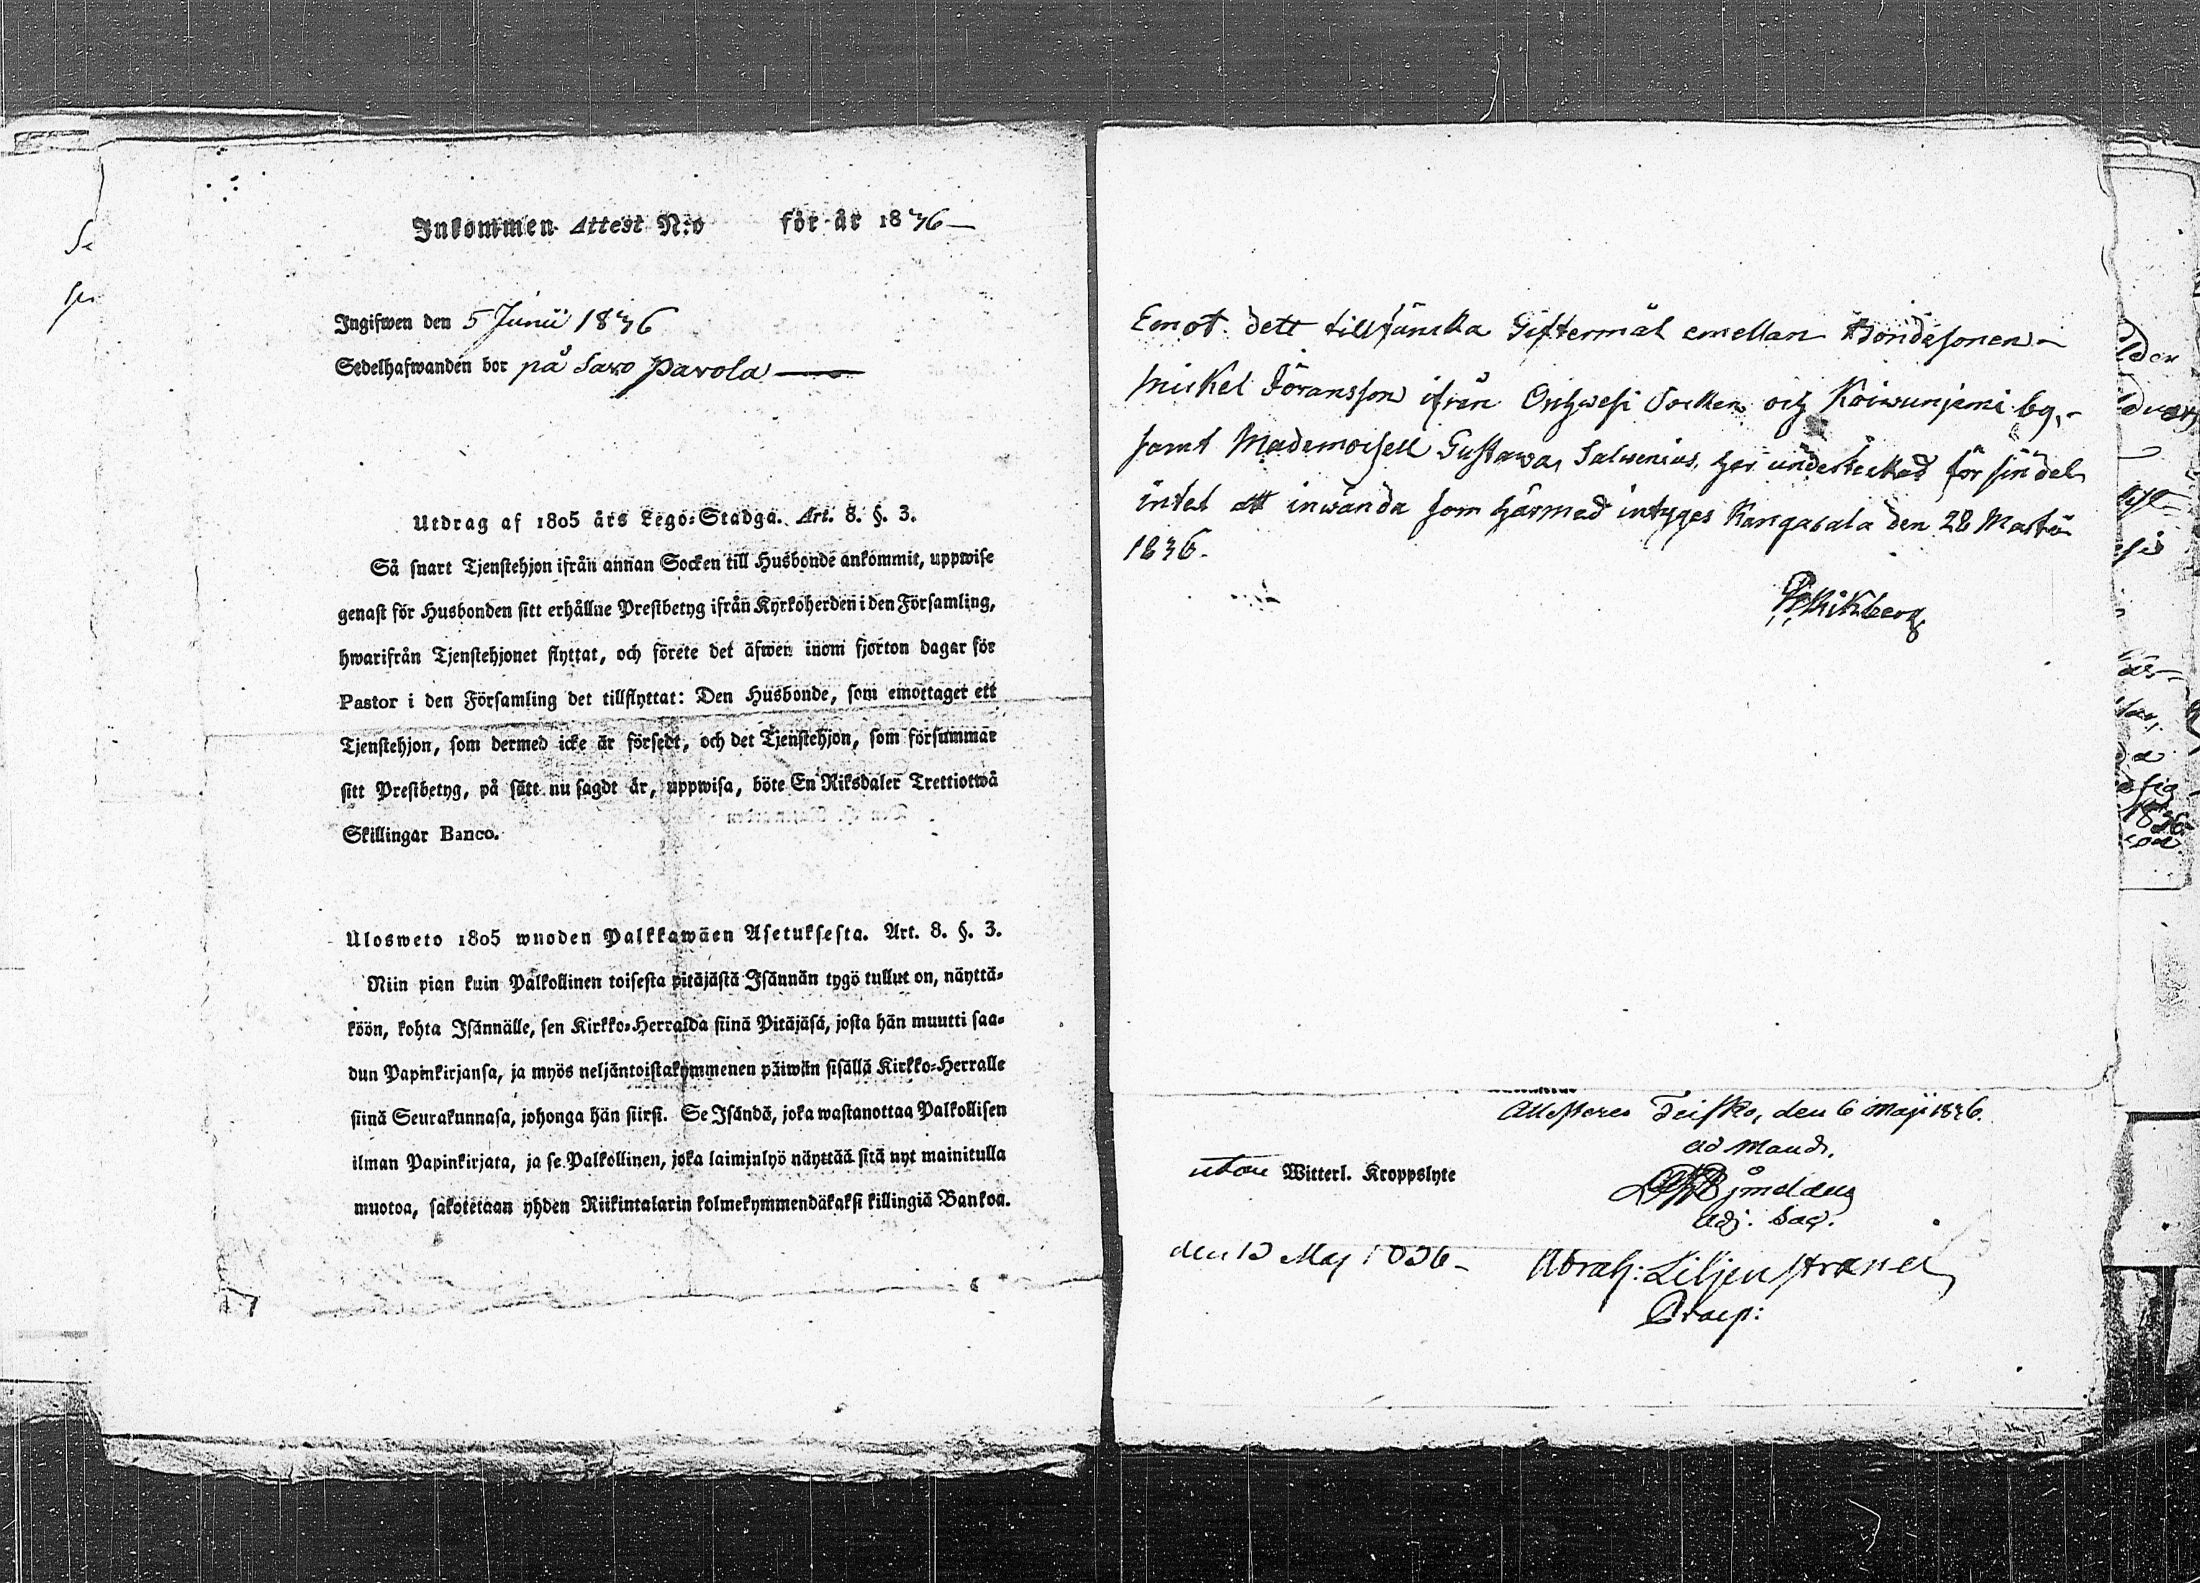 Inkommen Attest N:o för år 1836
Ingifwen den 5 Junii 1836
Sedelhafwanden bor på Saxo Parola
Utdrag af 1805 års Lego-Stadga. Art. 8. §. 3.
Så snart Tjenstehjon ifrån annan Socken till Husbonde ankommit, uppwise
genast för Husbonden sitt erhållne Prestbetyg ifrån Kyrkoherden i den Församling,
hwarifrån Tjenstehjonet flyttat, och förete det äfwen inom fjorton dagar för
Pastor i den Församling det tillflyttat: Den Husbonde, som emottager ett
Tjenstehjon, som dermed icke är försedt, och det Tjenstehjon, som försummar
sitt Prestbetyg, på sätt nu sagdt är, uppwisa, böte En Riksdaler Trettiotwå
Skillingar Banco.
Ulosweto 1805 wuoden Palkkawäen Asetuksesta. Art. 8. §. 3.
Niin pian kuin Palkollinen toisesta pitäjästä Isännän tygö tullut on, näyttä-
köön, kohta Isännälle, sen Kirkko-Herralda siinä Pitäjäsä, josta hän muutti saa-
dun Papinkirjansa, ja myös neljäntoistakymmenen päiwän sisällä Kirkko-Herralle
siinä Seurakunnasa, johonga hän siirsi. Se Isändä, joka wastanottaa Palkollisen
ilman Papinkirjata, ja se Palkollinen, joka laiminlyö näyttää sitä nyt mainitulla
muotoa, sakotetaan yhden Riikintalarin kolmekymmendäkaksi killingiä Bankoa.
Emot dett tilltänckta Giftermål emellan Bondesonen
Mickel Jöransson ifrån Orihwesi Socken och Koiwuniemi by,
samt Mademoisell Gustawa Salwenius, har undertecknad för sin del
intet att inwända som härmed intyges Kangasala den 28 Martii
1836.
Wikberg
Attesteres Teisko, den 6 Maji 1836.
ad Mand.
utan Witterl. Kroppslyte
Adj. Sac.
den 13 Maj 1836
Abrah: Liljenstrand
Praep: